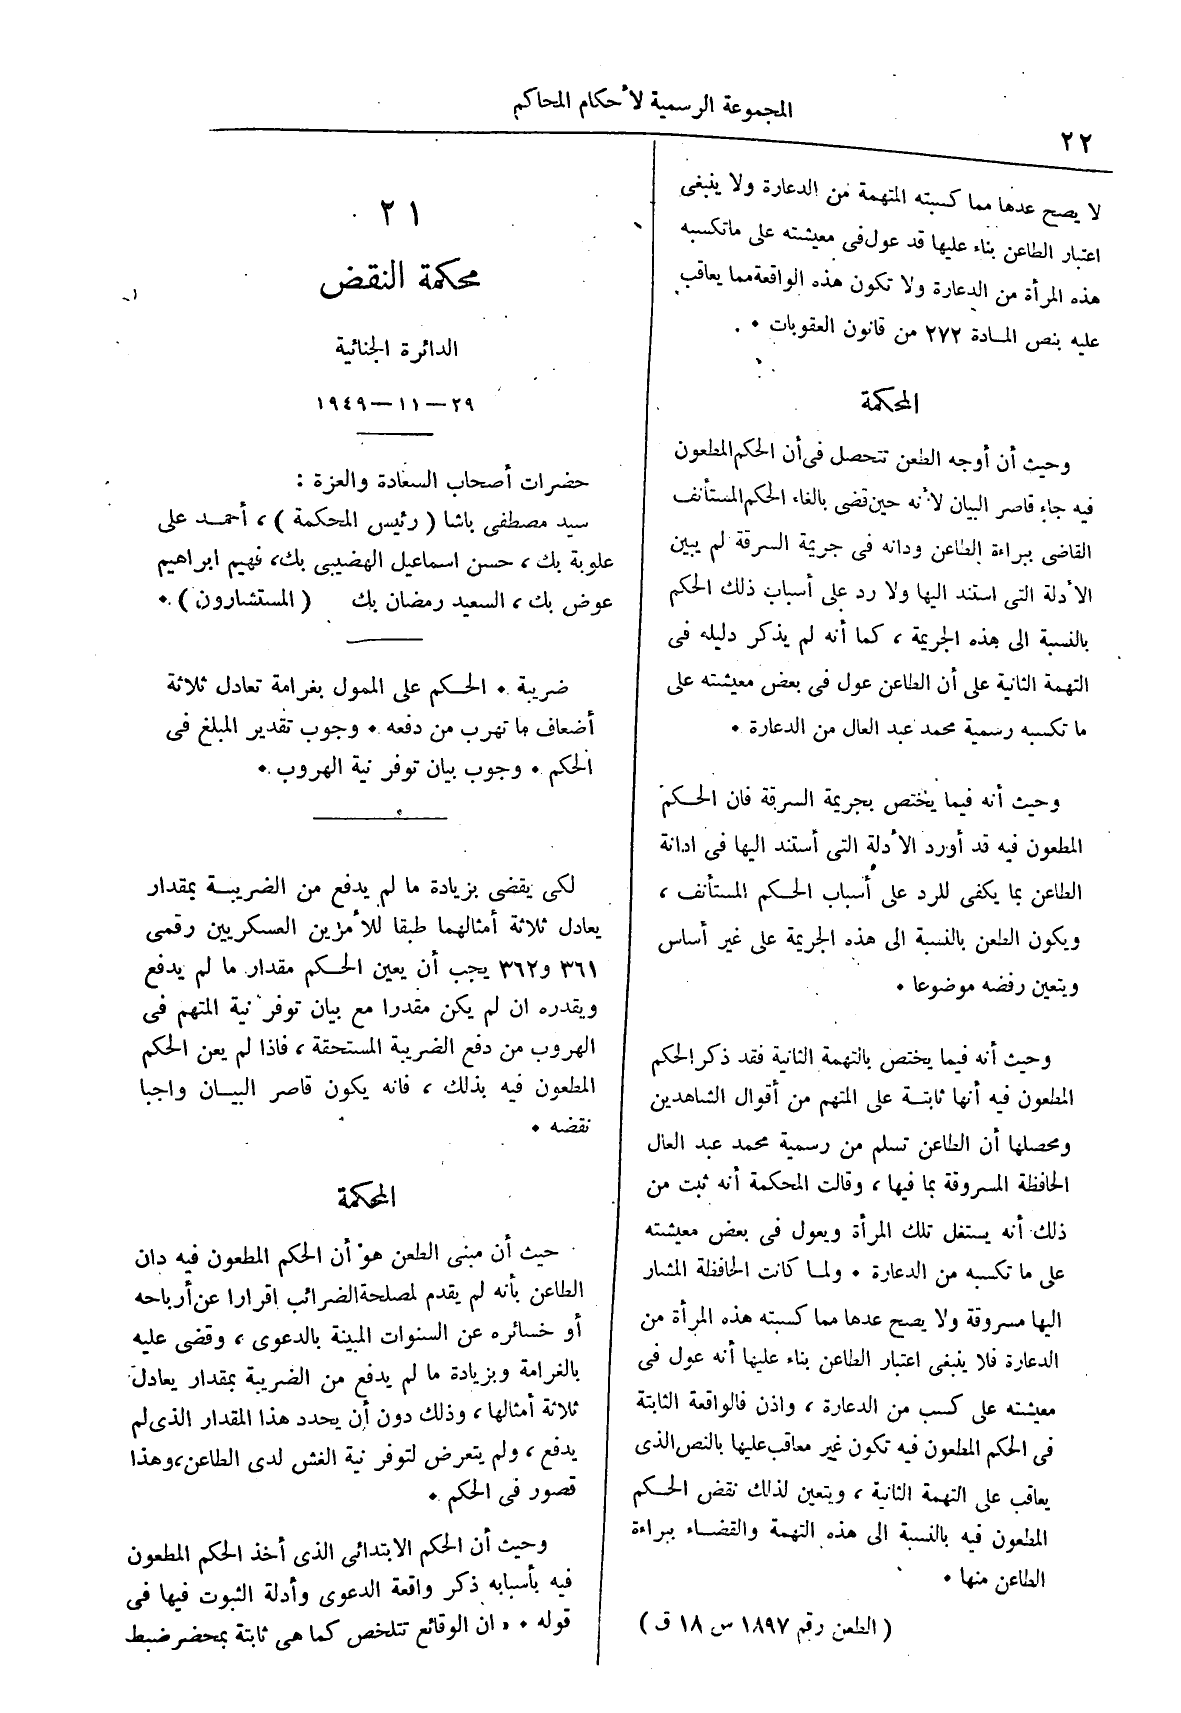 المجموعة الرسمية لأحكام المحاكم
٢٢
لا يصح عدها مما كسبته المتهمة من الدعارة ولا ينبغى
اعتبار الطاعن بناء عليها قد عول فى معيشته على ماتكسبه
هذه المرأة من الدعارة ولا تكون هذه الواقعة مما يعاقب
عليه بنص المادة ٢٧٢ من قانون العقوبات .
المحكمة
وحيث أن أوجه الطعن تتحصل فى أن الحكم المطعون
فيه جاء قاصر البيان لأنه حين قضى بالغاء الحكم المستأنف
القاضى ببراءة الطاعن ودانه فى جريمة السرقة لم يبين
الأدلة التى استند اليها ولا رد على أسباب ذلك الحكم
بالنسبة الى هذه الجريمة ، كما أنه لم يذكر دليله فى
التهمة الثانية على أن الطاعن عول فى بعض معيشته على
ما تكسبه رسمية محمد عبد العال من الدعارة .
وحيث أنه فيما يختص بجريمة السرقة فان الحكم
المطعون فيه قد أورد الأدلة التى أستند اليها فى ادانة
الطاعن بما يكفى للرد على أسباب الحكم المستأنف ،
ويكون الطعن بالنسبة الى هذه الجريمة على غير أساس
ويتعين رفضه موضوعا .
وحيث أنه فيما يختص بالتهمة الثانية فقد ذكر الحكم
المطعون فيه أنها ثابتة على المتهم من أقوال الشاهدين
ومحصلها أن الطاعن تسلم من رسمية محمد عبد العال
الحافظة المسروقة بما فيها ، وقالت المحكمة أنه ثبت من
ذلك أنه يستغل تلك المرأة ويعول فى بعض معيشته
على ما تكسبه من الدعارة . ولما كانت الحافظة المشار
اليها مسروقة ولا يصح عدها مما كسبته هذه المرأة من
الدعارة فلا ينبغى اعتبار الطاعن بناء عليها أنه عول فى
معيشته على كسب من الدعارة ، واذن فالواقعة الثابتة
فى الحكم المطعون فيه تكون غير معاقب عليها بالنص الذى
يعاقب على التهمة الثانية ، ويتعين لذلك نقض الحكم
المطعون فيه بالنسبة الى هذه التهمة والقضاء ببراءة
الطاعن منها .
( الطعن رقم ١٨٩٧ س ١٨ ق )
٢١
محكمة النقض
الدائرة الجنائية
٢٩ – ١١ – ١٩٤٩
حضرات أصحاب السعادة والعزة :
سيد مصطفى باشا ( رئيس المحكمة ) ، أحمد على
علوبة بك ، حسن اسماعيل الهضيبى بك ، فهيم ابراهيم
عوض بك ، السعيد رمضان بك ( المستشارون ) .
ضريبة . الحكم على الممول بغرامة تعادل ثلاثة
أضعاف ما تهرب من دفعه . وجوب تقدير المبلغ فى
الحكم . وجوب بيان توفر نية الهروب .
لكى يقضى بزيادة ما لم يدفع من الضريبة بمقدار
يعادل ثلاثة أمثالهما طبقا للأمرين العسكريين رقمى
٣٦١ و٣٦٢ يجب أن يعين الحكم مقدار ما لم يدفع
ويقدره ان لم يكن مقدرا مع بيان توفر نية المتهم فى
الهروب من دفع الضريبة المستحقة ، فاذا لم يعن الحكم
المطعون فيه بذلك ، فانه يكون قاصر البيان واجبا
نقضه .
المحكمة
حيث أن مبنى الطعن هو أن الحكم المطعون فيه دان
الطاعن بأنه لم يقدم لمصلحة الضرائب اقرارا عن أرباحه
أو خسائره عن السنوات المبينة بالدعوى ، وقضى عليه
بالغرامة وبزيادة ما لم يدفع من الضريبة بمقدار يعادل
ثلاثة أمثالها ، وذلك دون أن يحدد هذا المقدار الذى لم
يدفع ، ولم يتعرض لتوفر نية الغش لدى الطاعن ، وهذا
قصور فى الحكم .
وحيث أن الحكم الابتدائى الذى أخذ الحكم المطعون
فيه بأسبابه ذكر واقعة الدعوى وأدلة الثبوت فيها فى
قوله . « ان الوقائع تتلخص كما هى ثابتة بمحضر ضبط